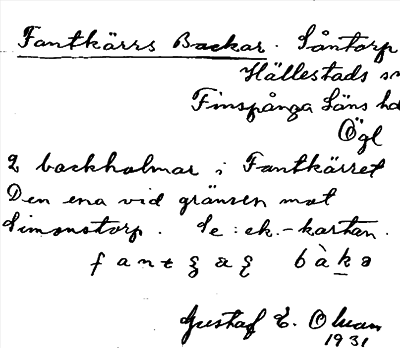 Fantkärrs Backar. Såntorp
Hällestads sn
Finspånga Läns hd
Ögl
2 backholmar i Fantkärret
Den ena vid gränsen mot
Simonstorp. Se: ek.-kartan.
Gustaf E. Olsson
1931